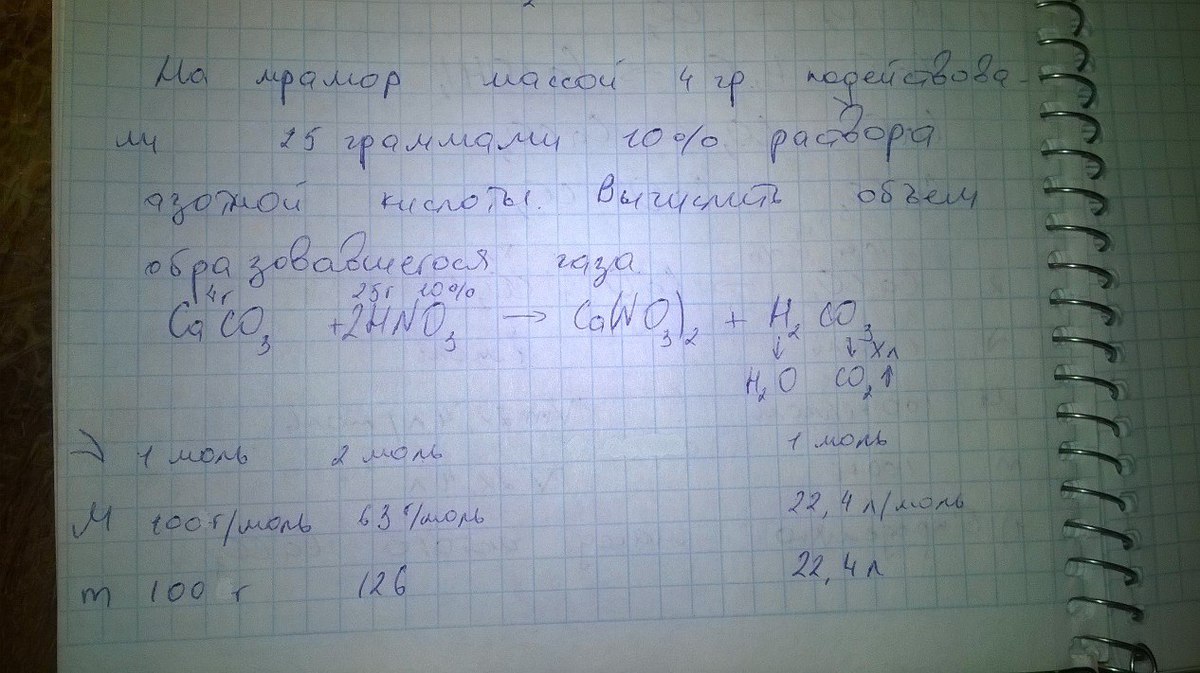 На мрамор массой 4 гр. подействова-
ли 25 граммами 10% раствора
азотной кислоты. Вычислить объем
образовавшегося газа.
4г 25г 10%
CaCO3 + 2HNO3 → Ca(NO3)2 + H2CO3
↓ ↓ xл
H2O CO2↑
ν 1 моль 2 моль 1 моль
M 100 г/моль 63 г/моль 22,4 л/моль
m 100 г 126 22,4 л